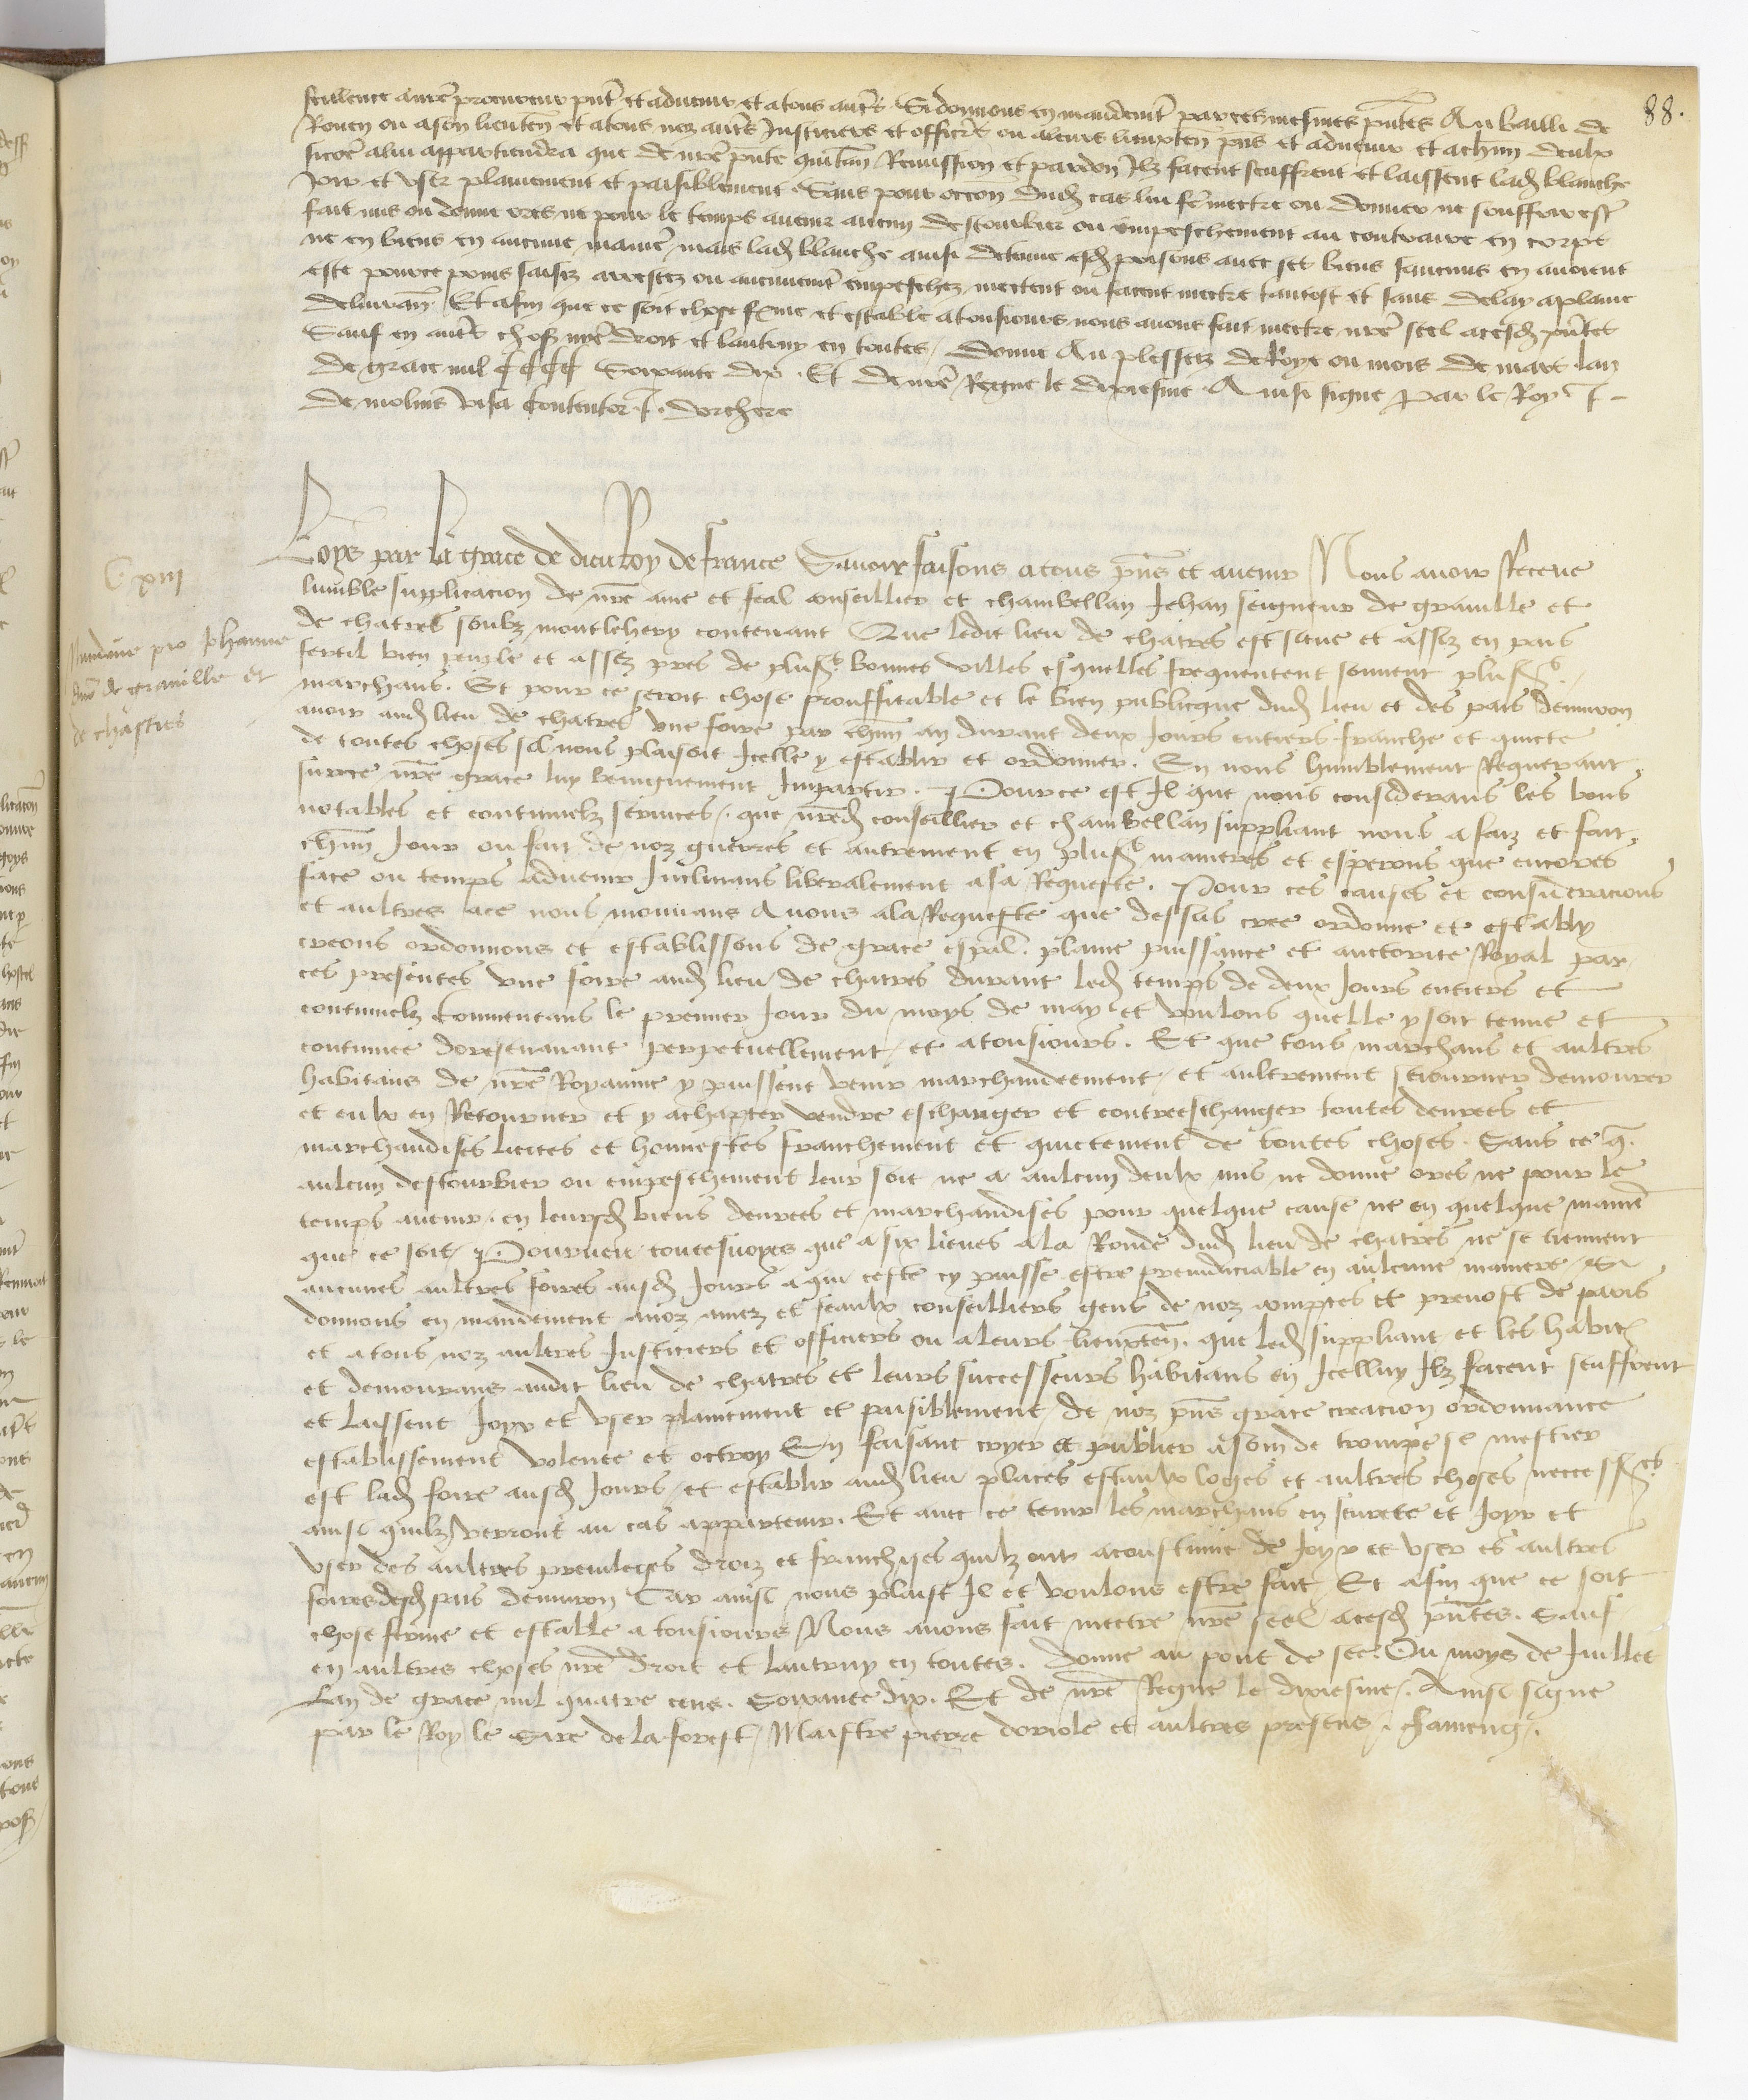 88.
scillence a nre procureur pnt et advenir et a tous autrs Si donnons en mandemt par ces mesmes pntes Au bailli de
Rouen ou a son lieuten et a tous noz autrs Justiciers et officrs ou a leurs lieuxten pns et advenir et a chun deulx
sicōe a lui appartiendra que de nre pnte quitan Remission et pardon Ilz facent seuffrent et laissent lad blanche
Joir et user plainement et paisiblement Sans pour occon dud cas lui fe mectre ou donner ne souffrir est
fait mis ou donne ores ne pour le temps avenir aucun destourbier ou empeschement au contraire en corps
ne en biens en aucune maniē mais lad blanche ainsi detenue esd prisons avec ses biens saucuns en avoient
este pource prins saisiz arrestez ou aucunemt empeschez mectent ou facent mectre tantost et sans delay a plaine
delivran Et afin que ce soit chose fme et estable a tousiours nous avons fait mectre nre seel a cesd pntes
Sauf en autrs choses nre droit et lautruy en toutes Donne Au plesseiz de Roye ou mois de mars lan
de grace mil CCCC Soixante dix Et de nre Regne le dixiesme Ainsi signe Par le Roy
De molins visa Contentor dorchere
Loys par la grace de dieu Roy de france Savoir faisons a tous pns et avenir Nous avoir Receue
lumble supplicacion de nre ame et feal conseillier et chambellan Jehan seigneur de graville et
de chatres soubz montlehery contenant Que ledit lieu de chatres est situe et assiz en pais
fertil bien peuple et assez pres de plus bonnes villes esquelles frequentent souvent plus
marchans. Et pour ce seroit chose prouffitable et le bien publicque dud lieu et des pais denviron
avoir aud lieu de chatres une foire par chun an durant deux Jours entiers franche et quicte
de toutes choses sil nous plaisoit Icelle y establir et ordonner. En nous humblement Requerant
sur ce nre grace luy benignement Impartir. Pource est Il que nous considerans les bons
notables et continuelz services que nred conseillier et chambellan suppliant nous a faiz et fait
chun Jour ou fait de noz guerres et autrement en plus manieres et esperons que encores
face ou temps advenir Inclinans liberalement a sa Requeste. Pour ces causes et consideracions
et aultres a ce nous mouvans Avons a la Requeste que dessus cree ordonne et estably
creons ordonnons et establissons de grace espal plaine puissance et auctorite Royal par
ces presentes une foire aud lieu de chatres durant led temps de deux Jours entiers et
continuelz Commencans le premier Jour du moys de may et voulons quelle y soit tenue et
continuee doresenavant perpetuellement et a tousiours. Et que tous marchans et aultres
habitans de nre Royaume y puissent venir marchandeement et aultrement seiourner demourer
et eulx en Retourner et y achapter vendre eschanger et contreeschanger toutes denrees et
marchandises licites et honnestes franchement et quictement de toutes choses. Sans ce q
aulcun destourbier ou empeschement leur soit ne a aulcun deulx mis ne donne ores ne pour le
temps avenir en leursd biens denrees et marchandises pour quelque cause ne en quelque maniē
que ce soit Pourveu toutesvoyes que a six lieues a la Ronde dud lieu de chatres ne se tiennent
aucunes aultres foires ausd Jours a qui ceste cy puisse estre preiudiciable en aulcune maniere Si
donnons en mandement a noz amez et feaulx conseilliers gens de noz comptes et prevost de paris
et a tous noz aultres Justiciers et officiers ou a leurs lieuxten que led suppliant et les habit
et demourans audit lieu de chatres et leurs successeurs habitans en Icelluy Ilz facent seuffrent
et laissent Joyr et user plainement et paisiblement de noz pns grace creacion ordonnance
establissement volente et octroy En faisant cryer et publier a son de trompe se mestier
est lad foire ausd Jours et establir aud lieu places estaulx loges et aultres choses necess
ainsi quilz verront au cas appartenir. Et avec ce tenir les marchans en seurete et Joyr et
user des aultres previleges droiz et franchises quilz ont acoustume de Joyr et user es aultres
foires desd pais denviron Car ainsi nous plaist Il et voulons estre fait Et afin que ce soit
chose ferme et estable a tousiours Nous avons fait mectre nre seel a cesd pntes. Sauf
en aultres choses nre droit et lautruy en toutes. Donne au pont de see Ou moys de Juillet
Lan de grace mil quatre cens. Soixante dix. Et de nre Regne le dixiesme. Ainsi signe
par le Roy le Sire de la forest Maistre pierre doriole et aultres presens. flameng.
C xiii
Nundine pro Johanne
dno de Graville et
de chastres